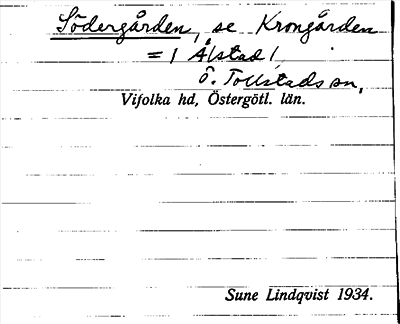 Södergården, se Krongården
= / Ålstad /
Ö. Tollstads sn,
Vifolka hd, Östergötl. län.
Sune Lindqvist 1934.